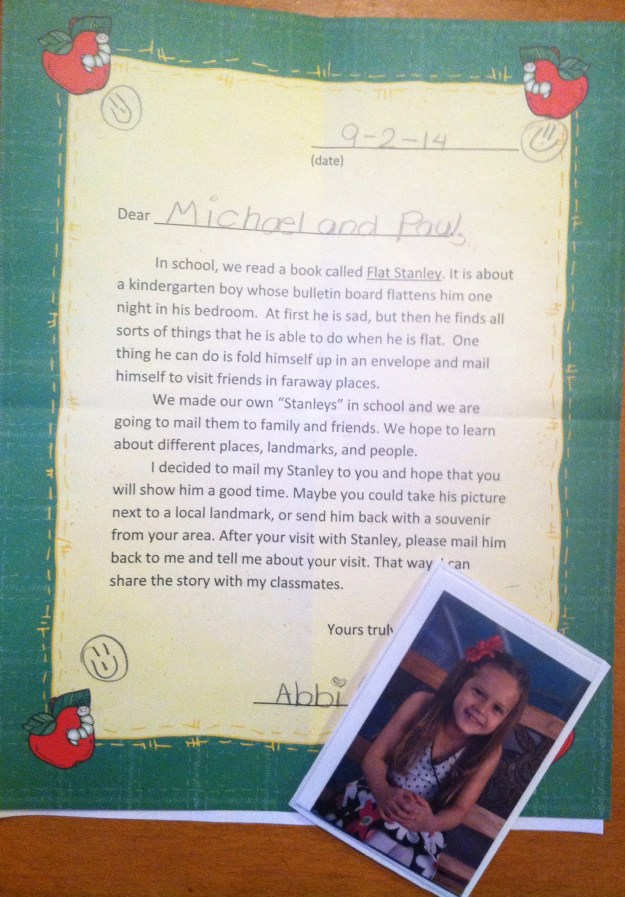 9-2-14
(date)
Dear Michael and Paul,
In school, we read a book called Flat Stanley. It is about
a kindergarten boy whose bulletin board flattens him one
night in his bedroom. At first he is sad, but then he finds all
sorts of things that he is able to do when he is flat. One
thing he can do is fold himself up in an envelope and mail
himself to visit friends in faraway places.
We made our own “Stanleys” in school and we are
going to mail them to family and friends. We hope to learn
about different places, landmarks, and people.
I decided to mail my Stanley to you and hope that you
will show him a good time. Maybe you could take his picture
next to a local landmark, or send him back with a souvenir
from your area. After your visit with Stanley, please mail him
back to me and tell me about your visit. That way I can
share the story with my classmates.
Yours trul
Abbi